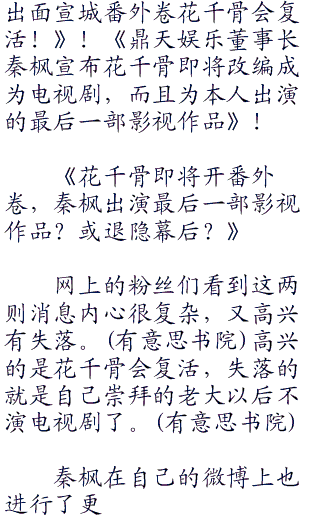 出面宣城番外卷花千骨会复
活！》！《鼎天娱乐董事长
秦枫宣布花千骨即将改编成
为电视剧，而且为本人出演
的最后一部影视作品》！
《花千骨即将开番外
卷，秦枫出演最后一部影视
作品？或退隐幕后？》
网上的粉丝们看到这两
则消息内心很复杂，又高兴
有失落。(有意思书院)高兴
的是花千骨会复活，失落的
就是自己崇拜的老大以后不
演电视剧了。(有意思书院)
秦枫在自己的微博上也
进行了更